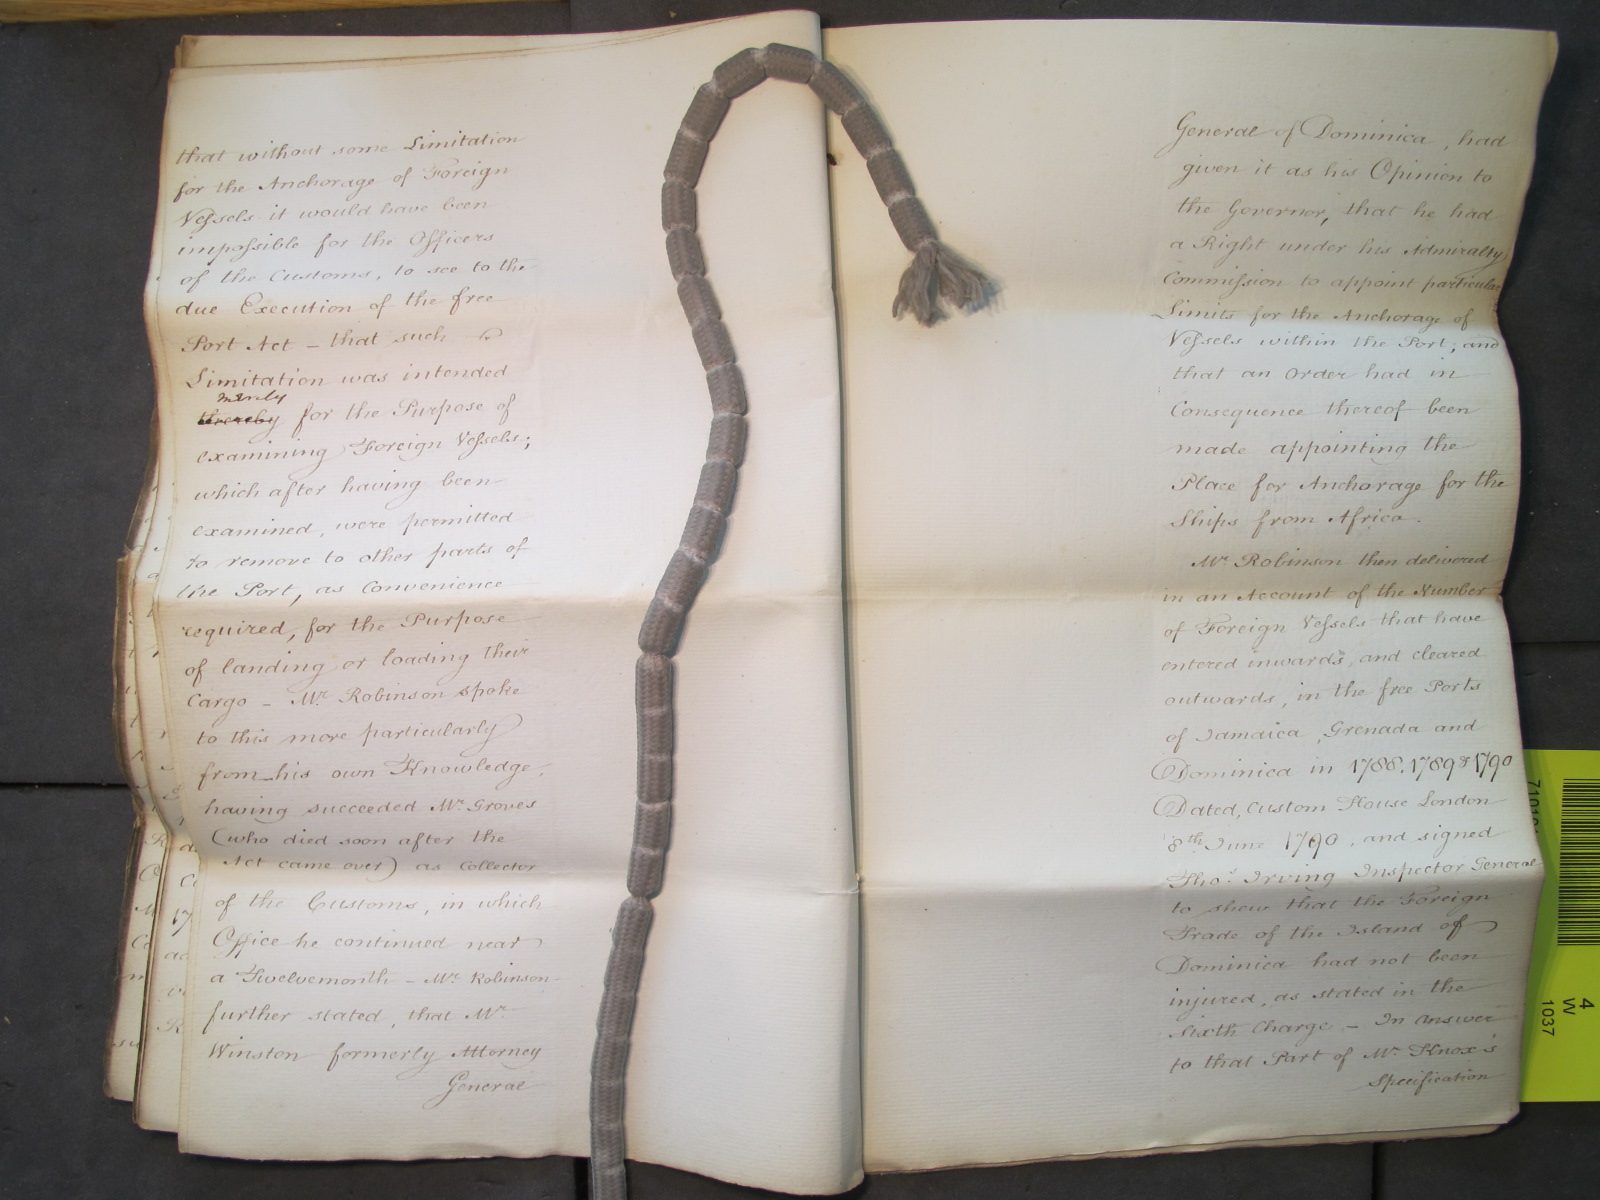 that without some Limitation
for the Anchorage of Foreign
Vessels it would have been
impossible for the Officers
of the Customs, to see to the
due Execution of the free
Port Act – that such
Limitation was intended
merely
thereby for the Purpose of
examining Foreign Vessels;
which after having been
examined, were permitted
to remove to other parts of
the Port, as Convenience
required, for the Purpose
of landing or loading their
Cargo – Mr. Robinson spoke
to this more particularly
from his own Knowledge,
having succeeded Mr. Groves
(who died soon after the
Act came over) as Collector
of the Customs, in which
Office he continued near
a Twelvemonth – Mr. Robinson
further stated, that Mr.
Winston formerly Attorney
General
General of Dominica, had
given it as his Opinion to
the Governor, that he had
a Right under his Admiralty
Commission to appoint particular
Limits for the Anchorage of
Vessels within the Port; and
that an Order had in
Consequence thereof been
made appointing the
Place for Anchorage for the
Ships from Africa.
Mr. Robinson then delivered
in an Account of the Number
of Foreign Vessels that have
entered inwards, and cleared
outwards, in the free Ports
of Jamaica, Grenada and
Dominica in 1788, 1789 & 1790
Dated, Custom House London
8th June 1790, and signed
Thos. Irving Inspector General
to shew that the Foreign
Trade of the Island of
Dominica had not been
injured, as stated in the
Sixth Charge – In answer
to that Part of Mr. Knox's
Specification
4
W
1037